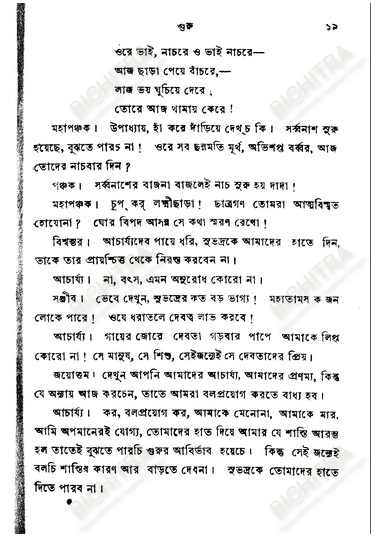 গুরু ১৯
ওরে ভাই, নাচরে ও ভাই নাচরে—
আজ ছাড়া পেয়ে বাঁচরে,—
লাজ ভয় ঘুচিয়ে দেরে ;
তোরে আজ থামায় কেরে !
মহাপঞ্চক। উপাধ্যায়, হাঁ করে দাঁড়িয়ে দেখ্‌চ কি। সর্ব্বনাশ সুরু
হয়েছে, বুঝতে পারচ না ! ওরে সব ছন্নমতি মূর্খ, অভিশপ্ত বর্ব্বর, আজ
তোদের নাচবার দিন ?
পঞ্চক। সর্ব্বনাশের বাজনা বাজলেই নাচ সুরু হয় দাদা !
মহাপঞ্চক। চুপ্‌ কর্‌ লক্ষ্মীছাড়া ! ছাত্রগণ তোমরা আত্মবিস্মৃত
হোয়োনা ? ঘোর বিপদ আসন্ন সে কথা স্মরণ রেখো !
বিশ্বম্ভর। আচার্য্যদেব পায়ে ধরি, সুভদ্রকে আমাদের হাতে দিন,
তাকে তার প্রায়শ্চিত্ত থেকে নিরস্ত করবেন না।
আচার্য্য। না, বৎস, এমন অনুরোধ কোরো না।
সঞ্জীব। ভেবে দেখুন, সুভদ্রের কত বড় ভাগ্য ! মহাতামস ক জন
লোকে পারে ! ওযে ধরাতলে দেবত্ব লাভ করবে !
আচার্য্য। গায়ের জোরে দেবতা গড়বার পাপে আমাকে লিপ্ত
কোরো না ! সে মানুষ, সে শিশু, সেইজন্যেই সে দেবতাদের প্রিয়।
জয়োত্তম। দেখুন আপনি আমাদের আচার্য্য, আমাদের প্রণম্য, কিন্তু
যে অন্যায় আজ করচেন, তাতে আমরা বলপ্রয়োগ করতে বাধ্য হব।
আচার্য্য। কর, বলপ্রয়োগ কর, আমাকে মেনোনা, আমাকে মার,
আমি অপমানেরই যোগ্য, তোমাদের হাত দিয়ে আমার যে শাস্তি আরম্ভ
হল তাতেই বুঝতে পারচি গুরুর আবির্ভাব হয়েচে। কিন্তু সেই জন্যেই
বলচি শাস্তির কারণ আর বাড়তে দেবনা। সুভদ্রকে তোমাদের হাতে
দিতে পারব না।
BICHITRA